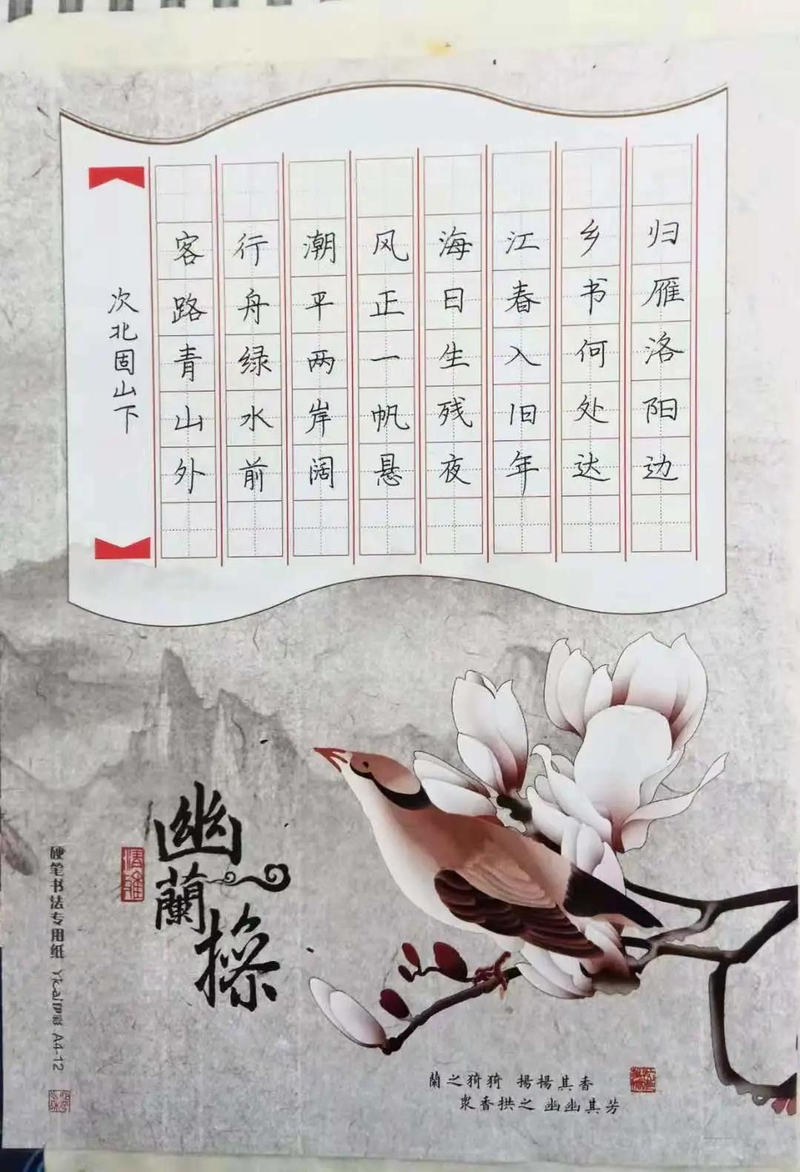 次北固山下
客路青山外
行舟绿水前
潮平两岸阔
风正一帆悬
海日生残夜
江春入旧年
乡书何处达
归雁洛阳边
幽蘭操
硬笔书法专用纸 A4-12
蘭之猗猗 揚揚其香
衆香拱之 幽幽其芳